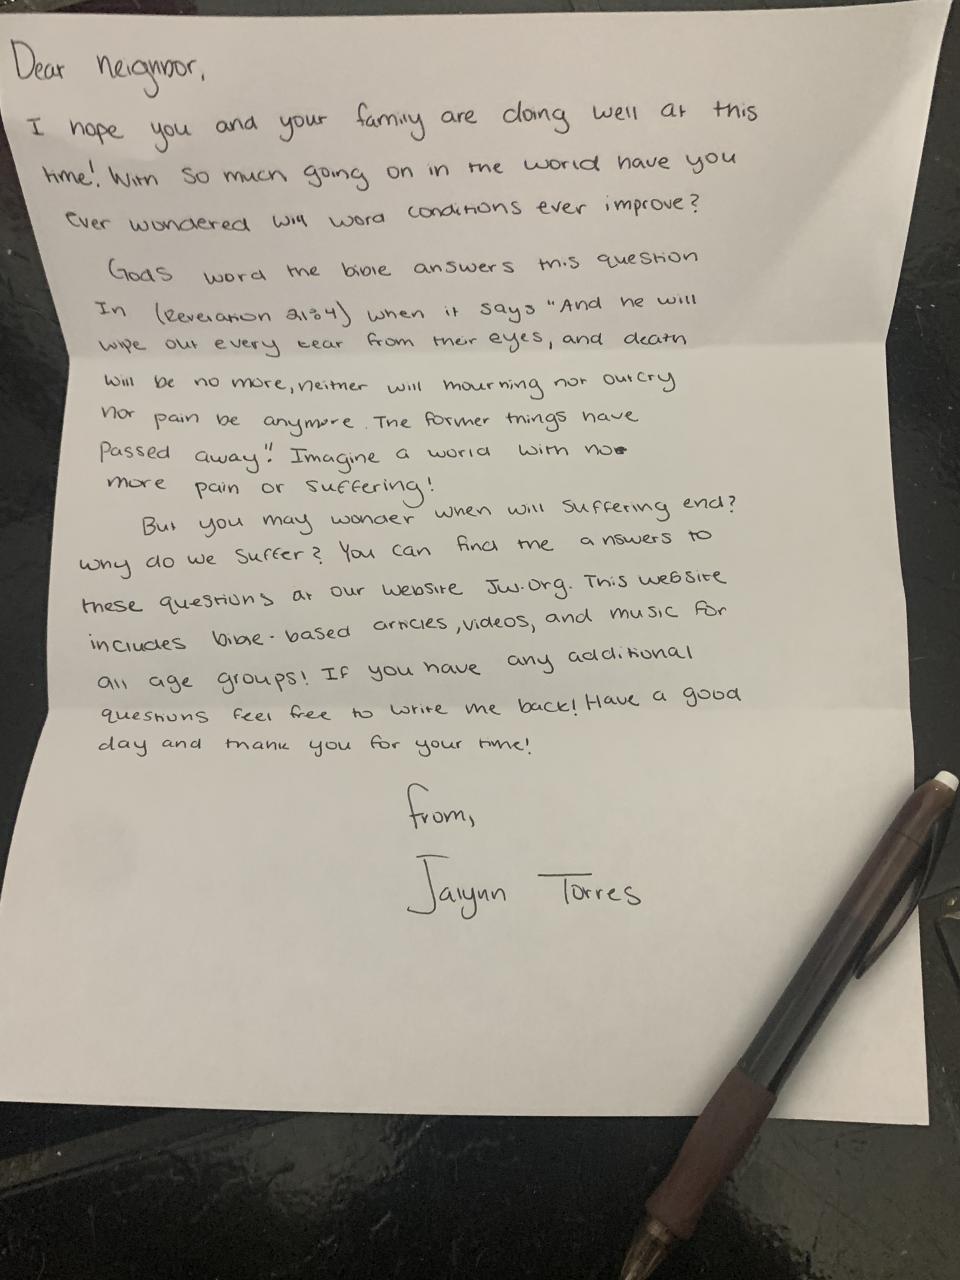 Dear neighbor,
I hope you and your family are doing well at this
time! With so much going on in the world have you
Ever wondered will word conditions ever improve?
Gods word the bible answers this question
In (Revelation 21:4) when it says "And he will
wipe out every tear from their eyes, and death
will be no more, neither will mourning nor outcry
nor pain be anymore. The former things have
Passed away". Imagine a world with no
more pain or suffering!
But you may wonder when will suffering end?
why do we suffer? You can find the answers to
these questions at our website Jw.org. This website
includes bible-based articles, videos, and music for
all age groups! If you have any additional
questions feel free to write me back! Have a good
day and thank you for your time!
from,
Jalynn Torres